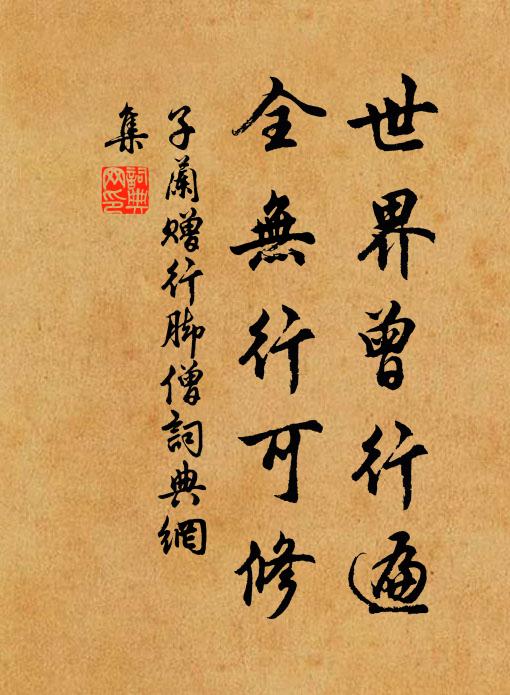 世界曾行遍
全無行可修
子蘭贈行脚僧詞典網
集
詞典網印